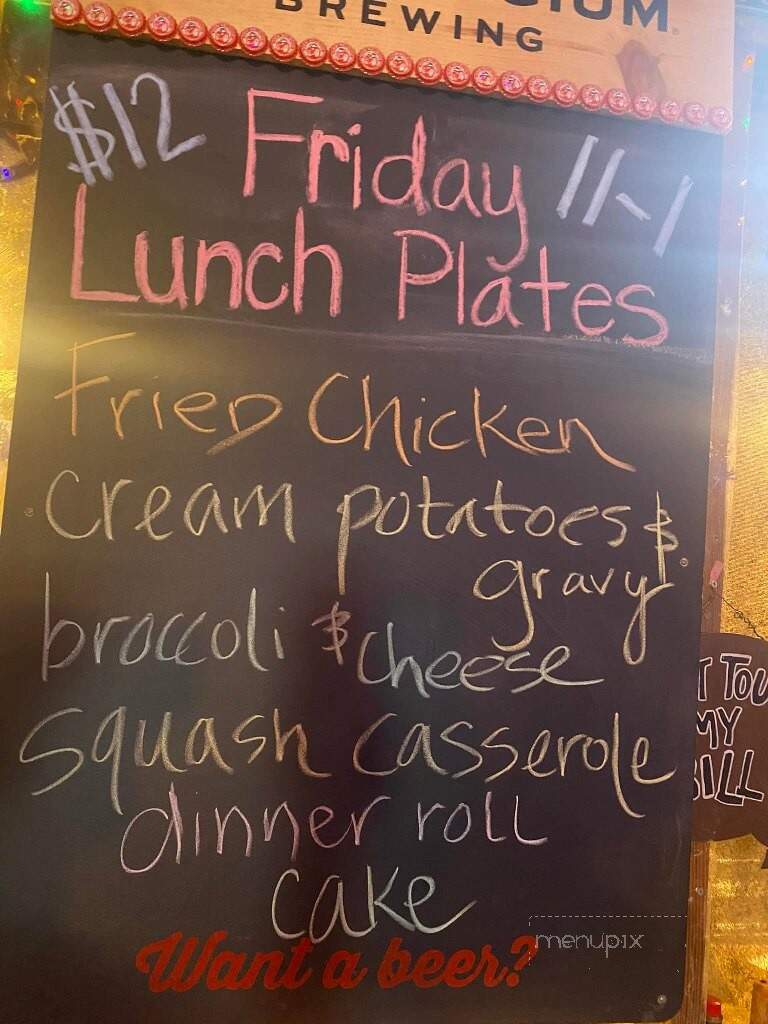 BREWING
$12 Friday 11-1
Lunch Plates
Fried Chicken
Cream potatoes &
gravy
broccoli & cheese
squash casserole
dinner roll
cake
Want a beer?
MY
menupix